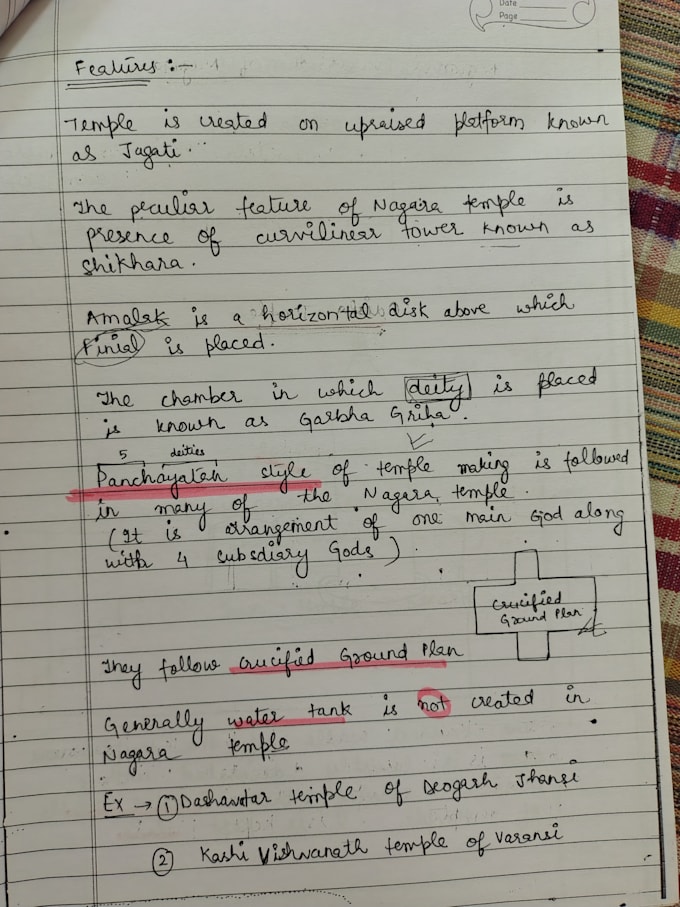 Date
Page
Features :-
Temple is created on upraised platform known
as Jagati.
The peculiar feature of Nagara temple is
presence of curvilinear tower known as
shikhara.
Amalak is a horizontal disk above which
Finial is placed.
The chamber in which deity is placed
is known as Garbha Griha.
5 deities
Panchayatan style of temple making is followed
in many of the Nagara temple.
(It is arrangement of one main God along
with 4 subsdiary Gods).
Crucified
Ground Plan
They follow crucified Ground Plan
Generally water tank is not created in
Nagara temple
Ex → ① Dashavatar temple of Deogarh Jhansi
② Kashi Vishwanath temple of Varansi